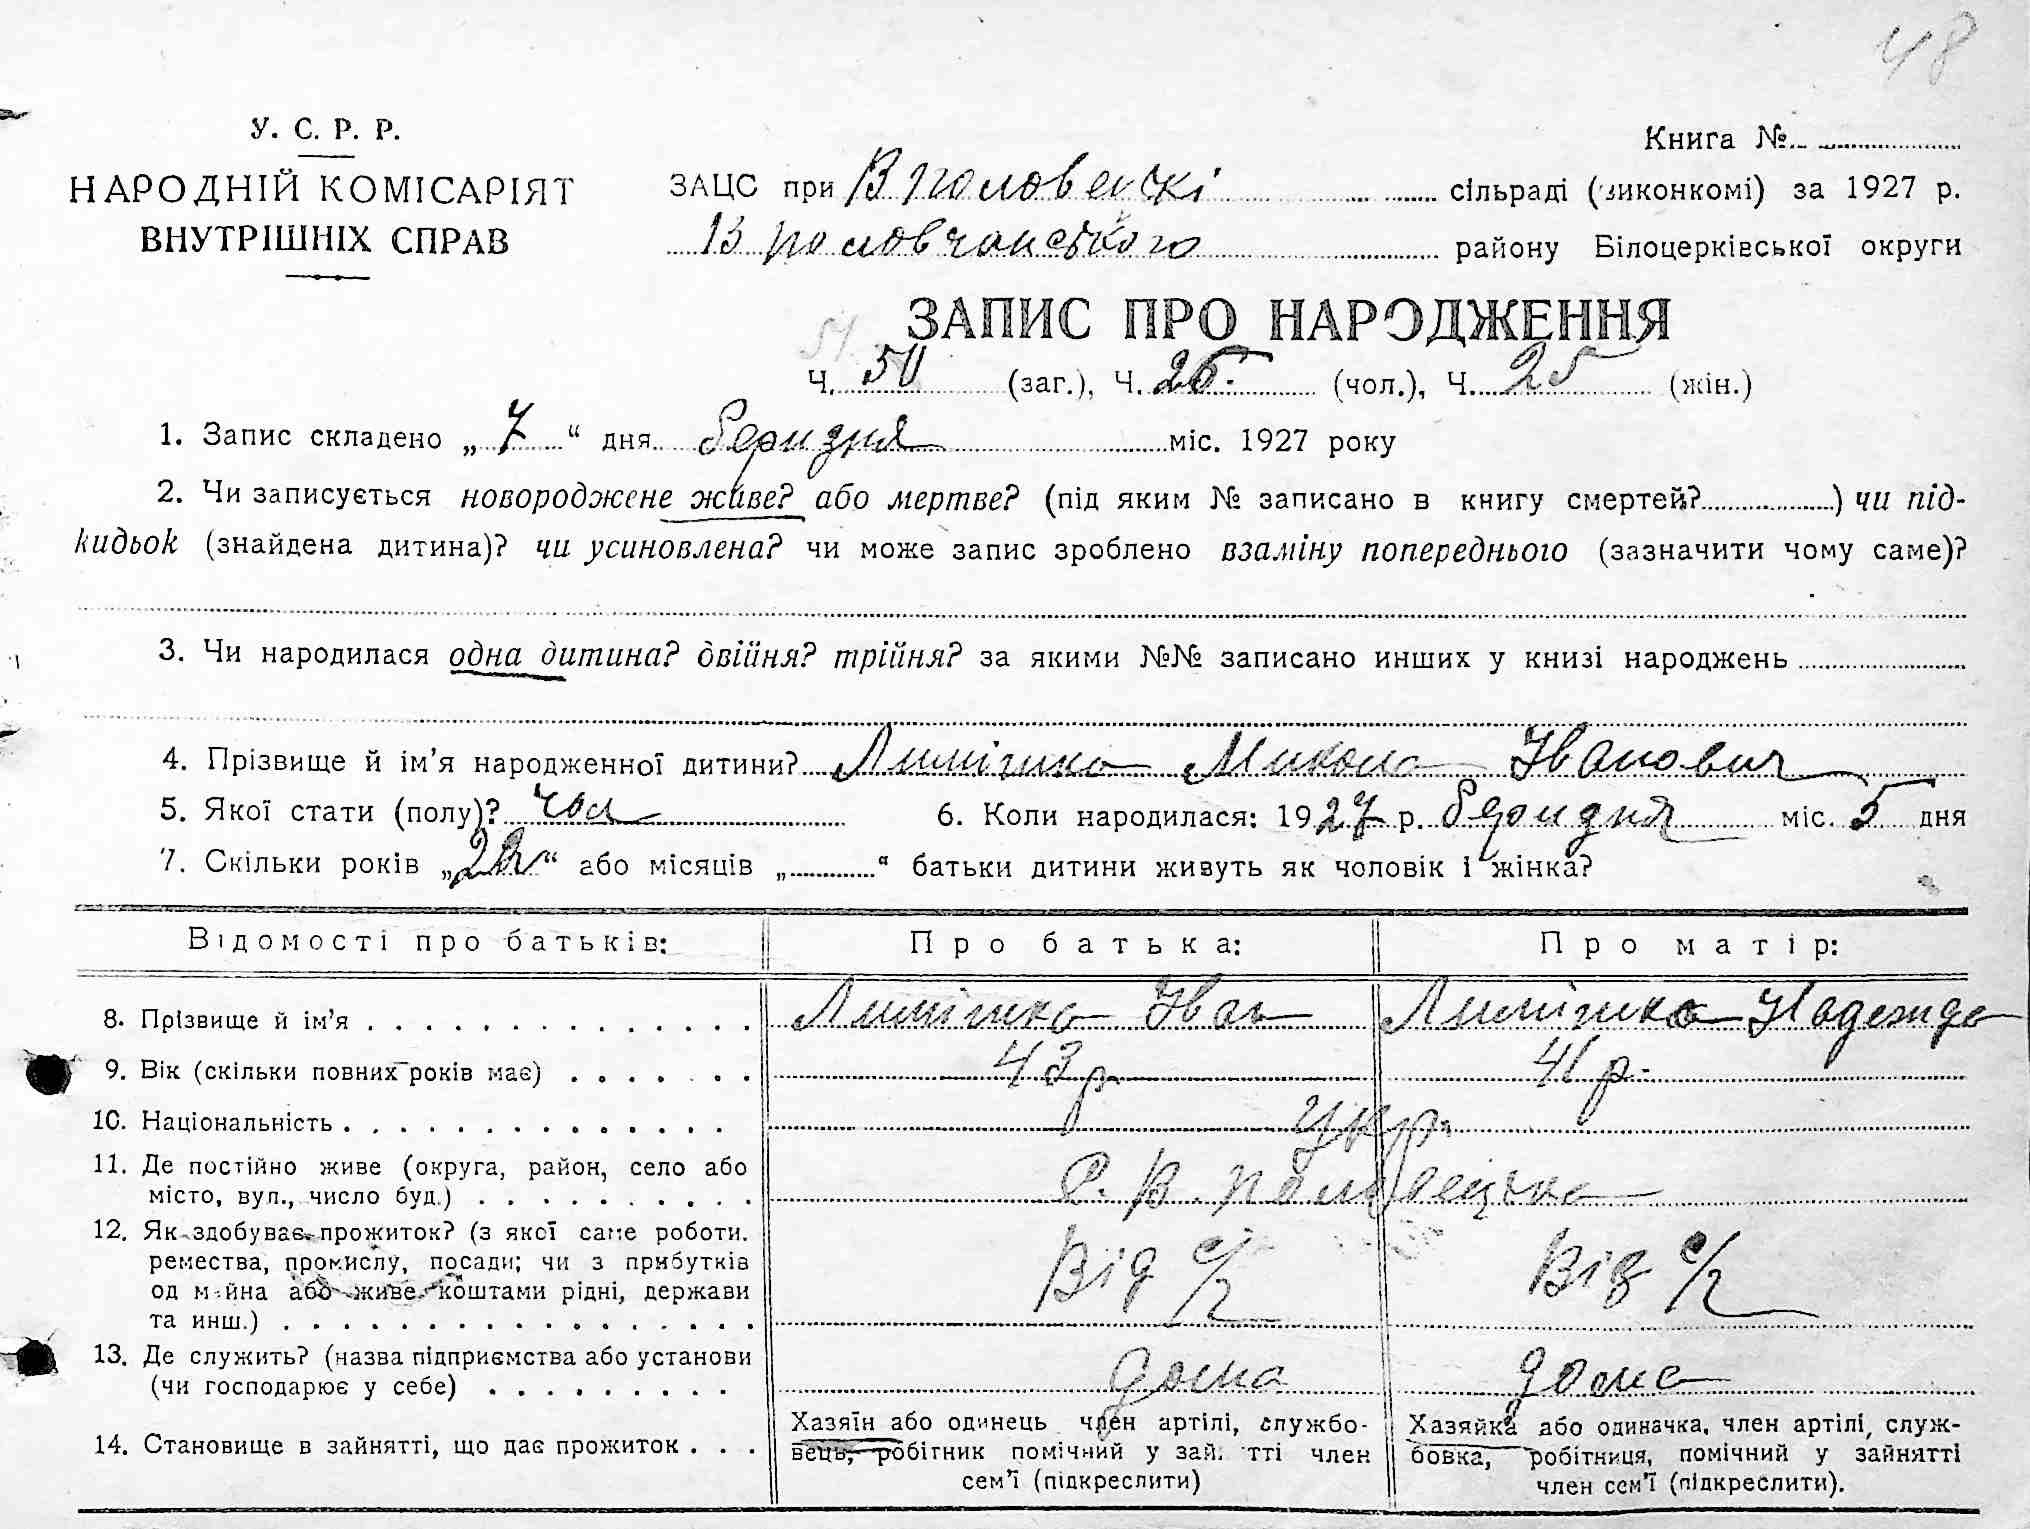 48
У. С. Р. Р.
НАРОДНІЙ КОМІСАРІЯТ
ВНУТРІШНІХ СПРАВ
Книга №
ЗАЦС при В Половецькі сільраді (виконкомі) за 1927 р.
В половчанського району Білоцерківської округи
ЗАПИС ПРО НАРОДЖЕННЯ
51
Ч. 50 (заг.), Ч. 26 (чол.), Ч. 25 (жін.)
1. Запис складено „ 7 “ дня березня міс. 1927 року
2. Чи записується новороджене живе? або мертве? (під яким № записано в книгу смертей? ) чи під-
кидьок (знайдена дитина)? чи усиновлена? чи може запис зроблено взаміну попереднього (зазначити чому саме)?
3. Чи народилася одна дитина? двійня? трійня? за якими №№ записано инших у книзі народжень
4. Прізвище й ім'я народженної дитини? Микола Іванович
5. Якої стати (полу)? чол 6. Коли народилася: 1927 р. березня міс. 5 дня
7. Скільки років „ “ або місяців „ “ батьки дитини живуть як чоловік і жінка?
Відомості про батьків: Про батька: Про матір:
8. Прізвище й ім'я Іван Надежда
9. Вік (скільки повних років має) 43 р 41 р.
10. Національність Укр.
11. Де постійно живе (округа, район, село або
місто, вул., число буд.) С. В. половецька
12. Як здобуває прожиток? (з якої саме роботи,
ремества, промислу, посади; чи з прибутків
од майна або живе коштами рідні, держави
та инш.) Від с/г Від с/г
13. Де служить? (назва підприємства або установи
(чи господарює у себе) дома дома
14. Становище в зайнятті, що дає прожиток
Хазяїн або одинець член артілі, службо-
вець, робітник помічний у зайнятті член
сем'ї (підкреслити)
Хазяйка або одиначка, член артілі, служ-
бовка, робітниця, помічний у зайнятті
член сем'ї (підкреслити).